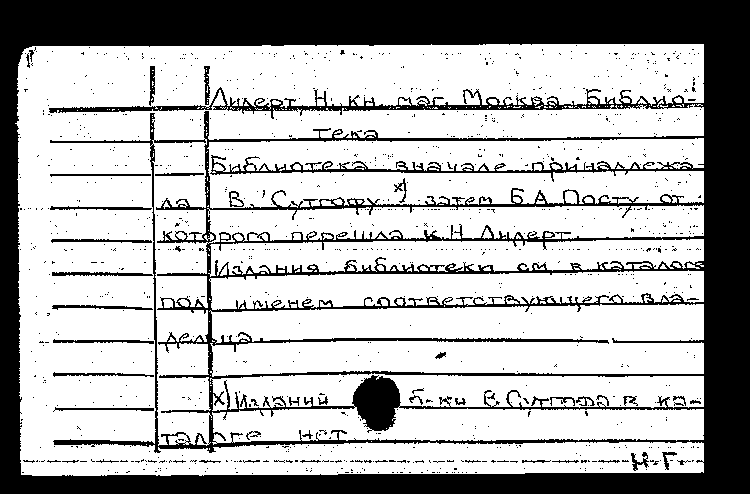 Лидерт, Н., кн. маг. Москва. Библио-
тека
Библиотека вначале принадлежа-
ла В. Сутгофу x), затем Б.А. Посту, от
которого перешла к Н. Лидерт.
Издания библиотеки см. в каталоге
под именем соответствующего вла-
дельца.
x) Изданий б-ки В. Сутгофа в ка-
талоге нет
Н-Г.